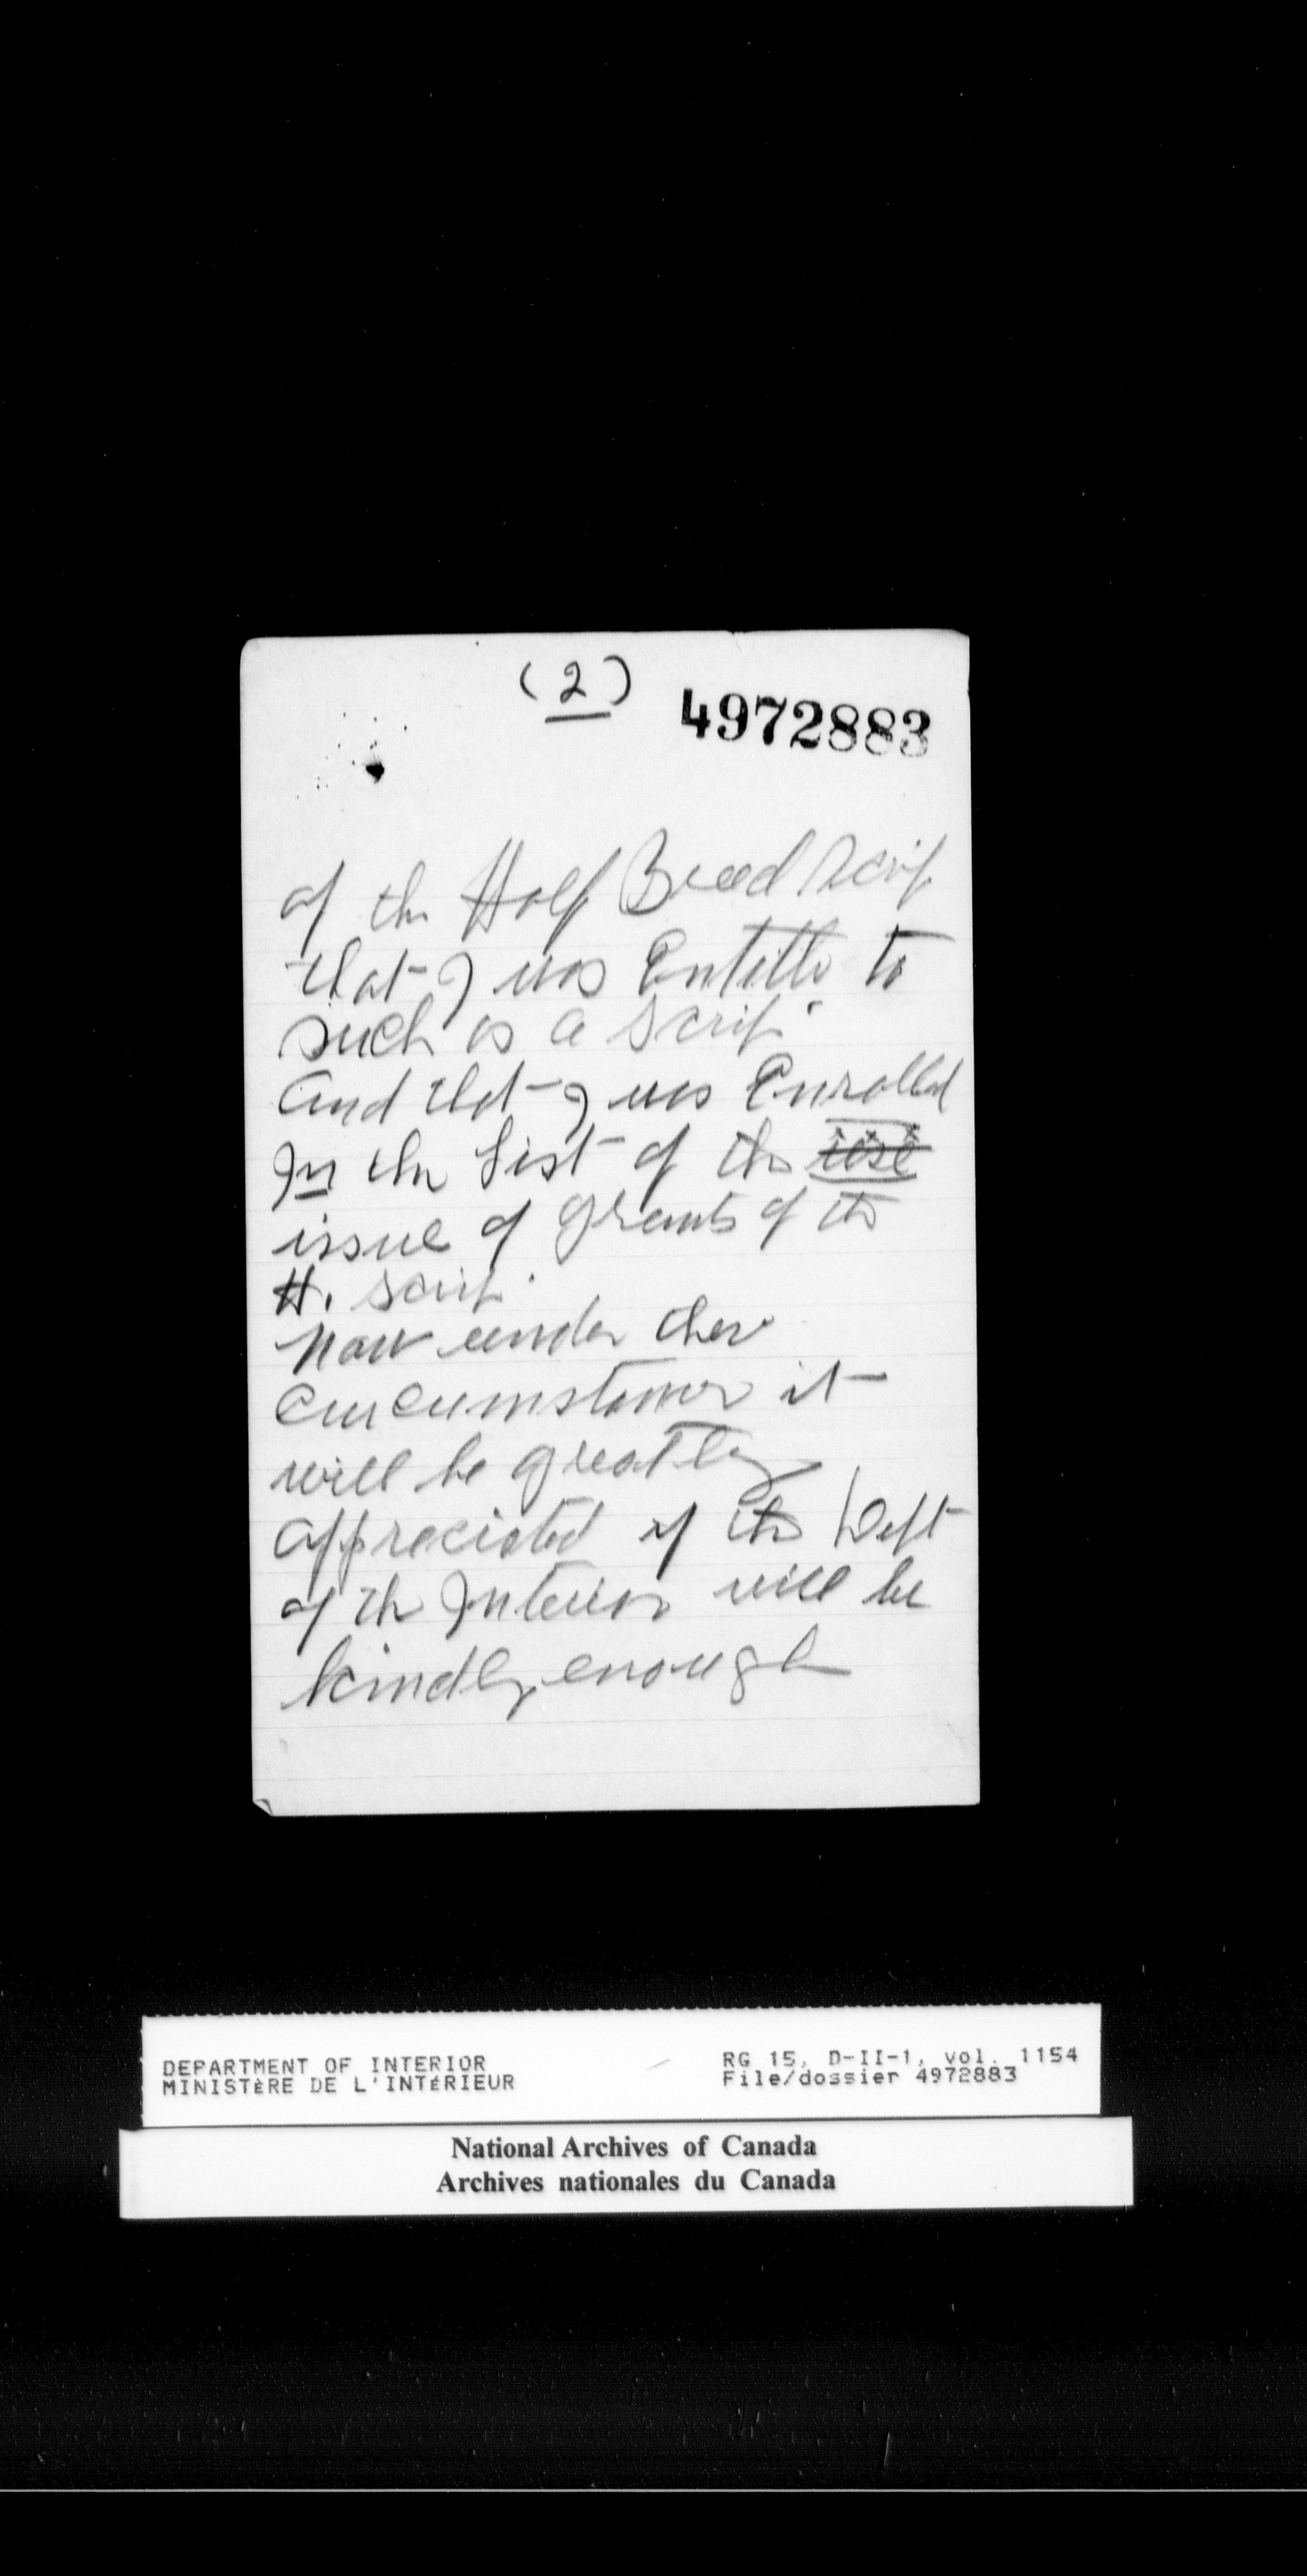 (2)
4972883
of the Half Breed Scrip
that I was Entitle to
such as a scrip.
and that I was Enrolled
In the List of the
issue of grants of the
H. scrip.
Now under these
circumstances it
will be greatly
appreciated if the Dept
of the Interior will be
kindly enough
DEPARTMENT OF INTERIOR
MINISTÈRE DE L'INTÉRIEUR
RG 15, D-II-1, vol. 1154
File/dossier 4972883
National Archives of Canada
Archives nationales du Canada